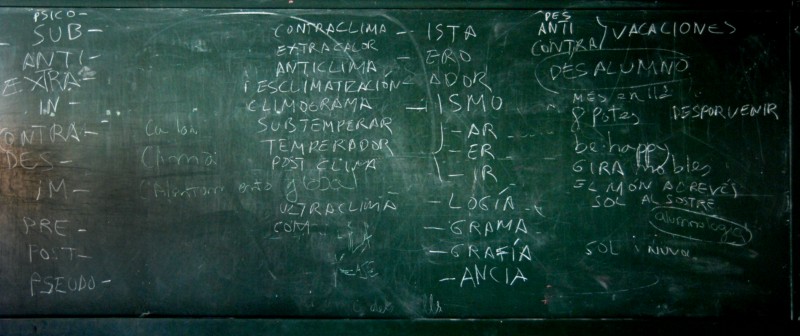 PSICO-
SUB-
ANTI-
EXTRA-
IN-
CONTRA-
DES-
IM-
PRE-
POST-
PSEUDO-
calor
Clima
y global
CONTRACLIMA
EXTRACALOR
ANTICLIMA
DESCLIMATIZACIÓN
CLIMOGRAMA
SUBTEMPERAR
TEMPERADOR
POST CLIMA
ULTRACLIMA
COM-
-ISTA
-ERO
-ADOR
-ISMO
-AR
-ER
-IR
-LOGÍA
-GRAMA
-GRAFÍA
-ANCIA
DES
ANTI
CONTRA
VACACIONES
DESALUMNO
8 potes
DESPORVENIR
be happy
GIRA mobles
EL MON AL REVÉS
SOL AL SOSTRE
SOL i NUVOL